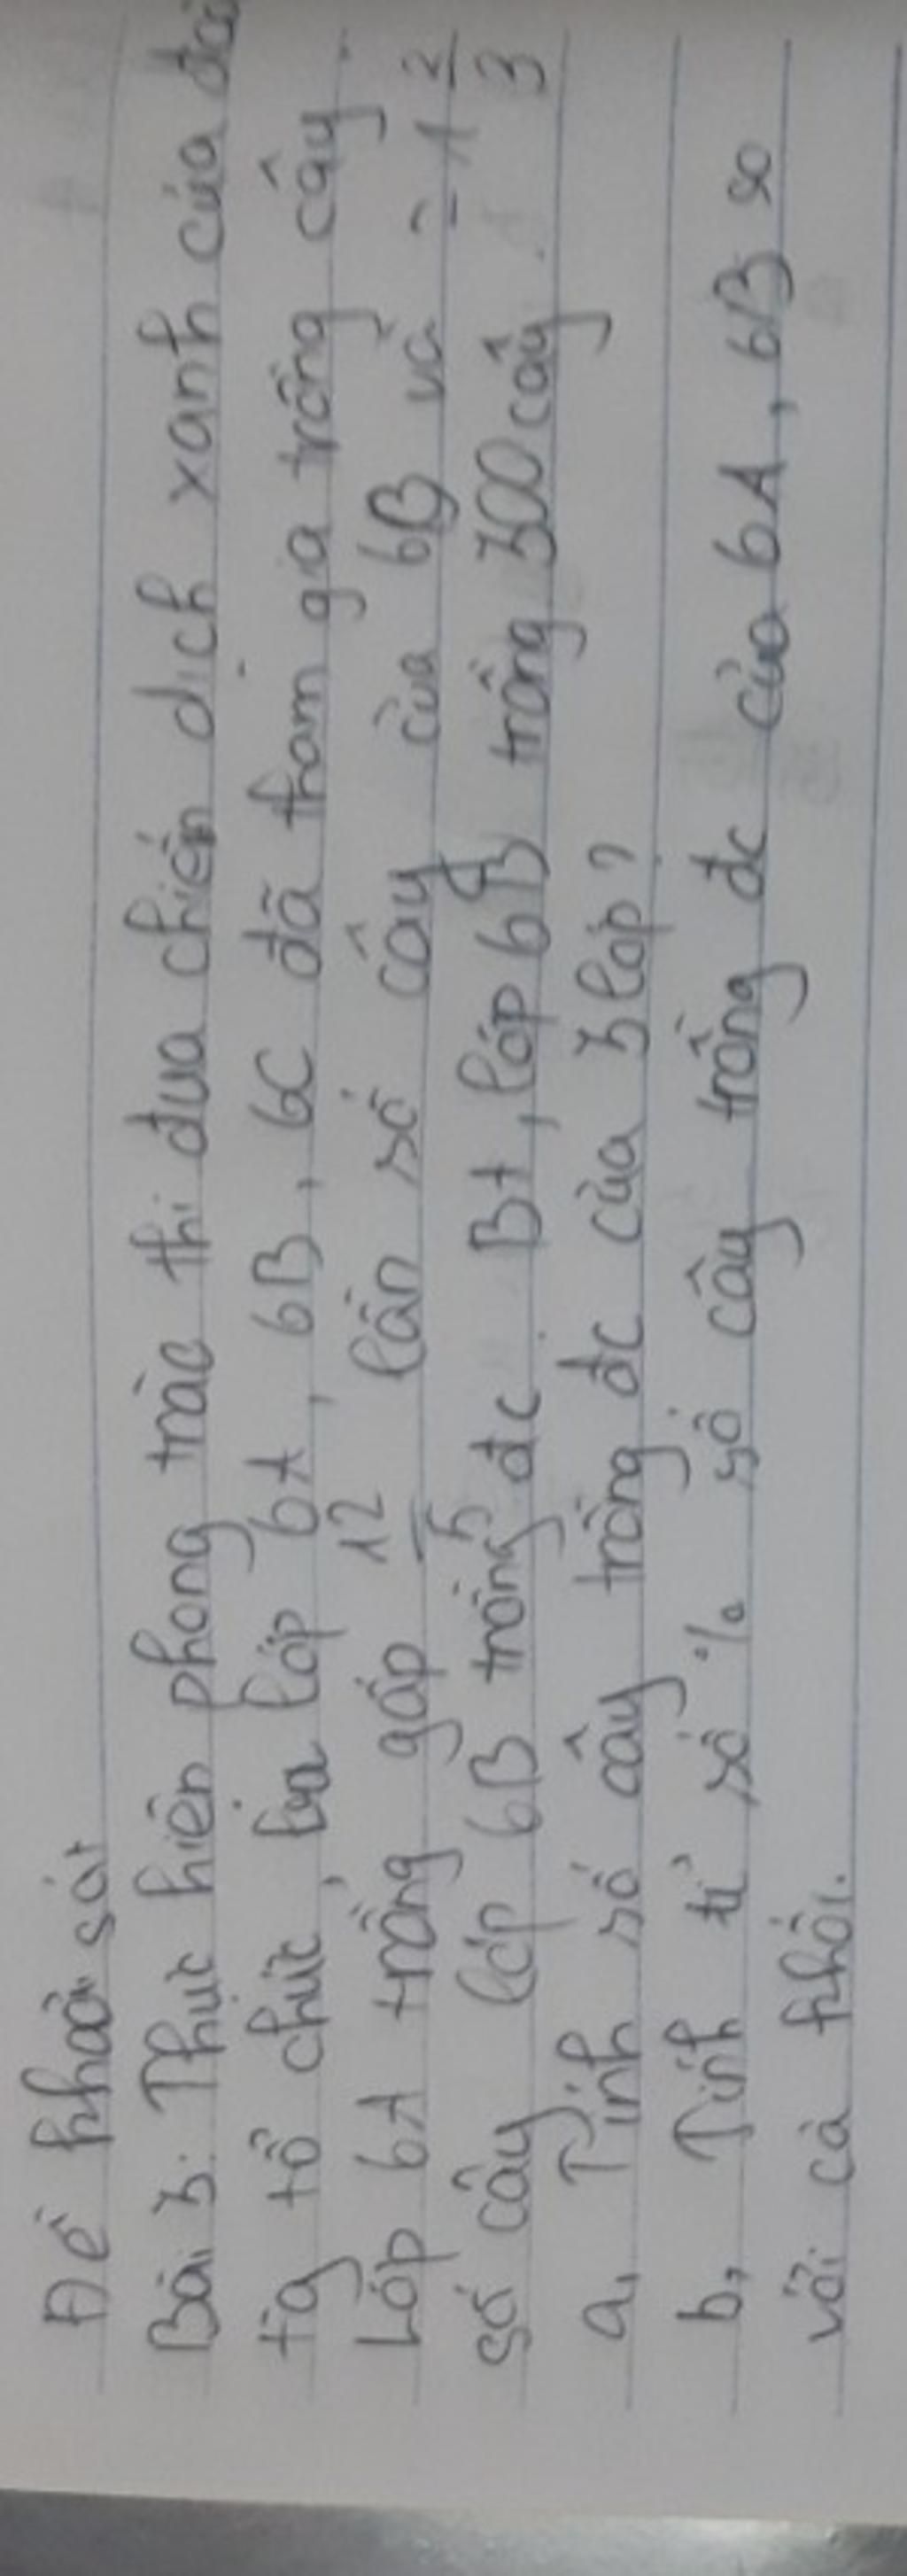 Đề khảo sát
Bài 3: Thực hiện phong trào thi đua chiến dịch xanh của
tg tổ chức, ba lớp 6A, 6B, 6C đã tham gia trồng cây.
Lớp 6A trồng gấp 12/5 lần số cây của 6B và = 1 2/3
số cây lớp 6B trồng đc. Bt, lớp 6B trồng 300 cây.
a, Tính số cây trồng đc của 3 lớp?
b, Tính tỉ số % số cây trồng đc của 6A, 6B so
với cả khối.